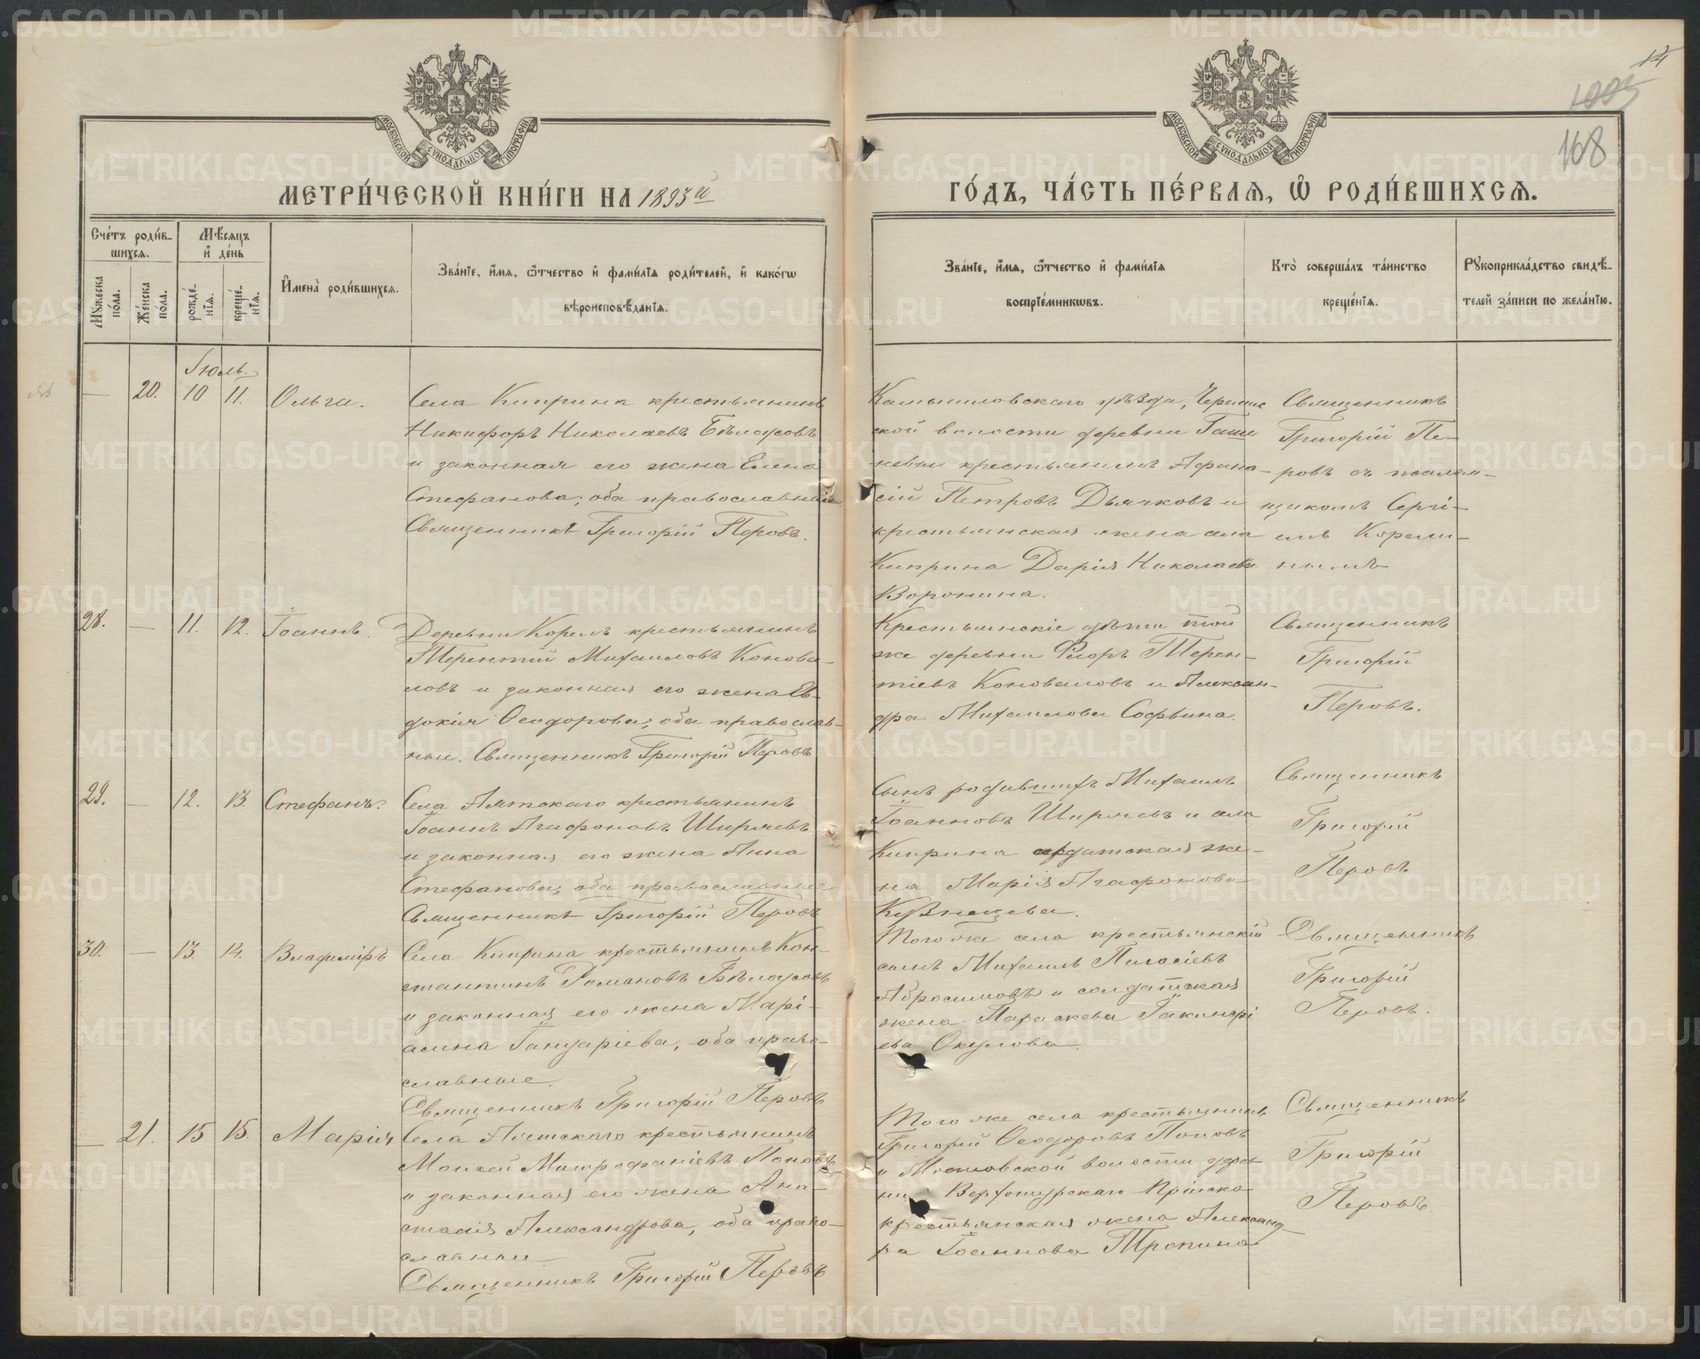 14
1005
168
МЕТРИ́ЧЕСКОЙ КНИ́ГИ НА 1893й
ГО́ДЪ, ЧА́СТЬ ПЕ́РВАЯ, Ѿ РОДИ́ВШИХСЯ.
МОСКОВСКОЙ СѴНОДАЛЬНОЙ ТИПОГРАФІИ
МОСКОВСКОЙ СѴНОДАЛЬНОЙ ТИПОГРАФІИ
Сче́тъ роди́в-
шихся.
Мꙋ́жеска по́ла.
Же́нска по́ла.
Мѣ́сяцъ и҆ де́нь
рожде́-
нїя.
креще́-
нїя.
И҆мена̀ роди́вшихся.
Зва́нїе, и҆́мя, ѻ҆́тчество и҆ фами́лїя роди́телей, и҆ како́гѡ
вѣроисповѣ́данїя.
Зва́нїе, и҆́мя, ѻ҆́тчество и҆ фами́лїя
воспрїе́мникѡвъ.
Кто̀ соверша́лъ та́инство
креще́нїя.
Рꙋкоприкла́дство свидѣ́-
телей за́писи по жела́нїю.
Іюль.
— 20. 10 11. Ольга.
Села Киприна крестьянинъ
Никифоръ Николаевъ Бѣлоусовъ
и законная его жена Елена
Стефанова; оба православные
Священникъ Григорій Перовъ.
Камышловскаго уѣзда,
ской волости деревни
крестьянинъ Афана-
сій Петровъ Дьячковъ и
крестьянская жена села
Киприна Дарія Николаева
Воронина.
Священникъ
Григорій Пе-
ровъ съ псалом-
щикомъ Сергі-
емъ
28. — 11. 12. Іоаннъ.
Деревни Корелъ крестьянинъ
Терентій Михаиловъ Конова-
ловъ и законная его жена Ев-
докія Ѳеодорова; оба православ-
ные. Священникъ Григорій Перовъ
Крестьянскіе дѣти той
же деревни Терен-
тіевъ Коноваловъ и Алексан-
дра Михаилова
Священникъ
Григорій
Перовъ.
29. — 12. 13 Стефанъ.
Села Аятскаго крестьянинъ
Іоаннъ Агафоновъ Ширяевъ
и законная его жена Анна
Стефанова; оба православные
Священникъ Григорій Перовъ
Сынъ родившихъ Михаилъ
Іоанновъ Ширяевъ и села
Киприна солдатская же-
на Марія Агафонова
Кузнецева.
Священникъ
Григорій
Перовъ
30. — 13. 14. Владиміръ
Села Киприна крестьянинъ Кон-
стантинъ Романовъ Бѣлоусовъ
и законная его жена Марі-
амна Іануаріева, оба право-
славные.
Священникъ Григорій Перовъ
Того же села крестьянскій
сынъ Михаилъ
Абросимовъ и солдатская
жена Параскева Іакинѳі
ева Окулова.
Священникъ
Григорій
Перовъ.
— 21. 15 15. Марія
Села Аятскаго крестьянинъ
Моисей Митрофаніевъ Поповъ
и законная его жена Ана-
стасія Александрова, оба право-
славные
Священникъ Григорій Перовъ
Того же села крестьянинъ
Григорій Ѳеодоровъ Поповъ
и волости дерев
ни Верхотурскаго Пріиска
крестьянская жена Александ
ра Іоаннова Тропина
Священникъ
Григорій
Перовъ.
METRIKI.GASO-URAL.RU